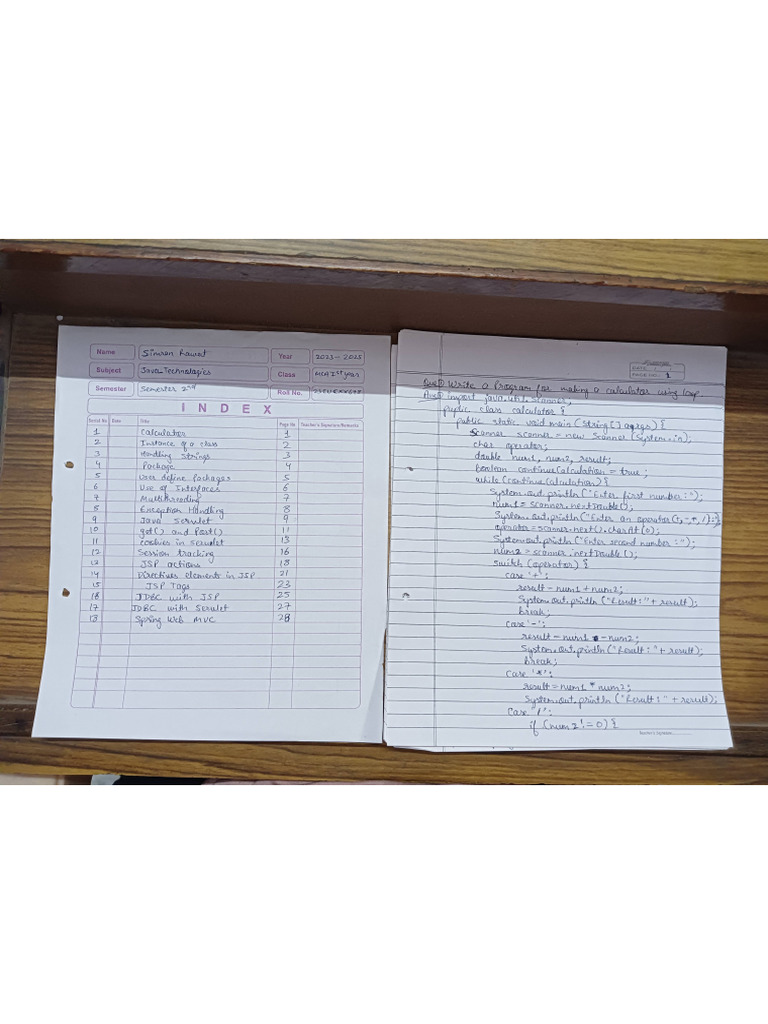 Name Simran Rawat Year 2023-2025
Subject Java Technologies Class MCA Ist year
Semester Semester 2nd Roll No.
INDEX
Serial No Date Title Page No Teacher's Signature/Remarks
1 Calculator 1
2 Instance of a class 2
3 Handling Strings 3
4 Package 4
5 User define Packages 5
6 Use of Interfaces 6
7 Multithreading 7
8 Exception Handling 8
9 Java Servlet 9
10 get() and Post() 11
11 cookies in Servlet 13
12 Session tracking 16
13 JSP actions 18
14 Directives elements in JSP 21
15 JSP Tags 23
16 JDBC with JSP 25
17 JDBC with Servlet 27
18 Spring Web MVC 28
DATE :
PAGE NO.: 1
Que① Write a Program for making a calculator using loop.
Ans① import java.util.Scanner;
public class calculator {
public static void main (String [] args) {
Scanner scanner = new Scanner (System.in);
char operator;
double num1, num2, result;
boolean continueCalculation = true ;
while (continueCalculation) {
System.out.println ("Enter first number :");
num1 = scanner.nextDouble();
System.out.println ("Enter an operator (+, -, *, /):");
operator = scanner.next().charAt(0);
System.out.println ("Enter second number :");
num2 = scanner.nextDouble ();
switch (operator) {
case '+':
result - num1 + num2;
System.out.println ("Result:" + result);
break;
case '-':
result - num1 - num2;
System.out.println ("Result : " + result);
break;
Case '*':
result = num1 * num2;
System.out.println ("Result : " + result);
Case '/':
if (num2 != 0) {
Teacher's Signature